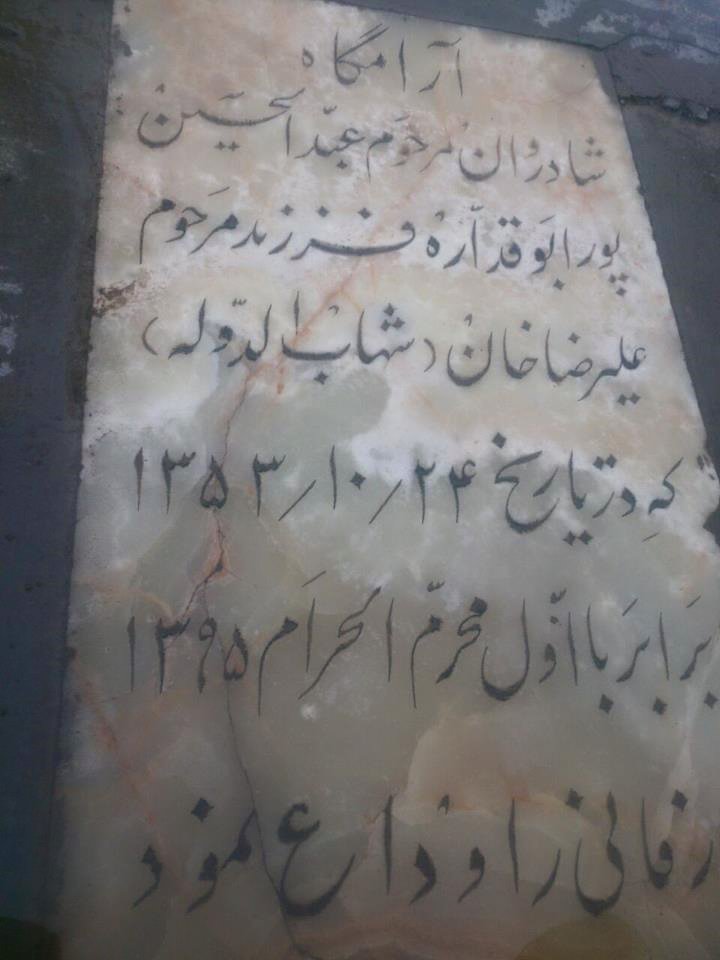 آرامگاه
شادروان مرحوم عبدالحسین
پور ابوقدّاره فرزند مرحوم
علیرضاخان (شهاب الدّوله)
که در تاریخ ۲۴/۱۰/۱۳۵۳
برابر با اوّل محرّم الحرام ۱۳۹۵
ر فانی را وداع نمود